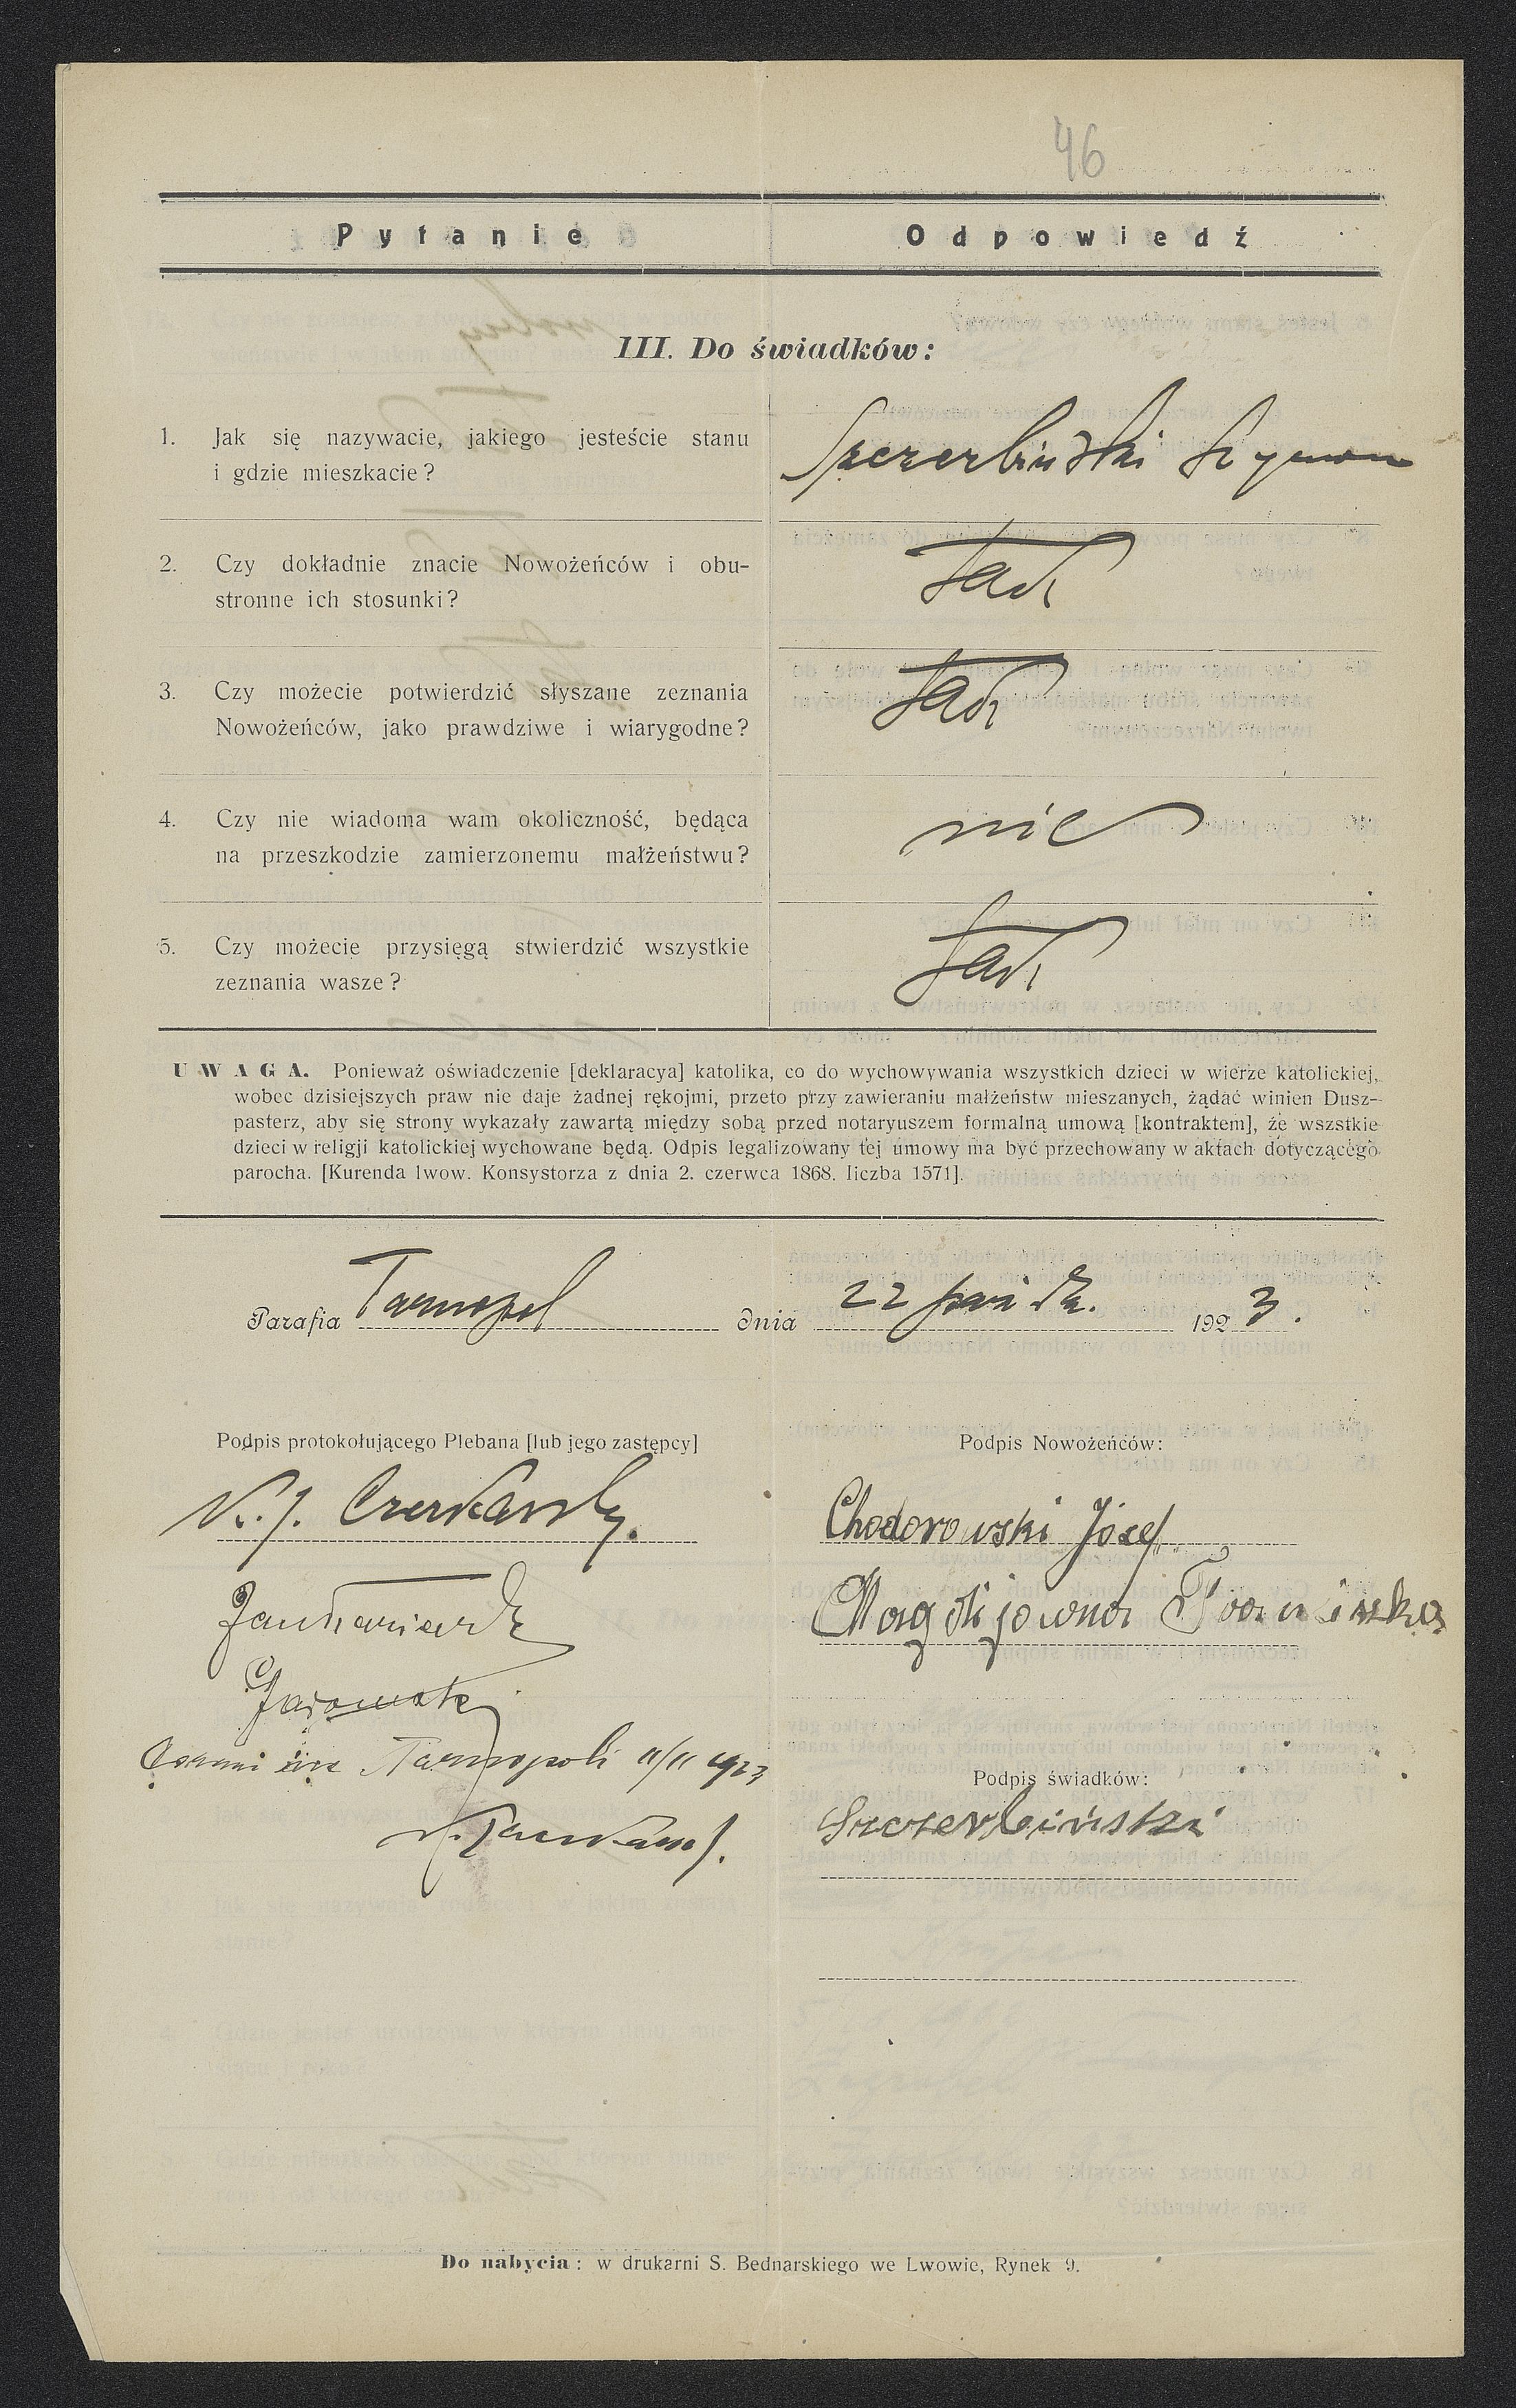 46
Pytanie Odpowiedź
III. Do świadków:
1. Jak się nazywacie, jakiego jesteście stanu
i gdzie mieszkacie?
Szczerbiński Szymon
2. Czy dokładnie znacie Nowożeńców i obu-
stronne ich stosunki?
tak
3. Czy możecie potwierdzić słyszane zeznania
Nowożeńców, jako prawdziwe i wiarygodne?
tak
4. Czy nie wiadoma wam okoliczność, będąca
na przeszkodzie zamierzonemu małżeństwu?
nie
5. Czy możecie przysięgą stwierdzić wszystkie
zeznania wasze?
tak
UWAGA. Ponieważ oświadczenie [deklaracya] katolika, co do wychowywania wszystkich dzieci w wierze katolickiej,
wobec dzisiejszych praw nie daje żadnej rękojmi, przeto przy zawieraniu małżeństw mieszanych, żądać winien Dusz-
pasterz, aby się strony wykazały zawartą między sobą przed notaryuszem formalną umową [kontraktem], że wszstkie
dzieci w religji katolickiej wychowane będą. Odpis legalizowany tej umowy ma być przechowany w aktach dotyczącego
parocha. [Kurenda lwow. Konsystorza z dnia 2. czerwca 1868. liczba 1571].
Parafia Tarnopol dnia 22 paźdz. 192 3.
Podpis protokołującego Plebana [lub jego zastępcy]
Podpis Nowożeńców:
Chodorowski Józef
Podpis świadków:
Tarnopoli 11/11 1923
Szczerbiński
Do nabycia: w drukarni S. Bednarskiego we Lwowie, Rynek 9.